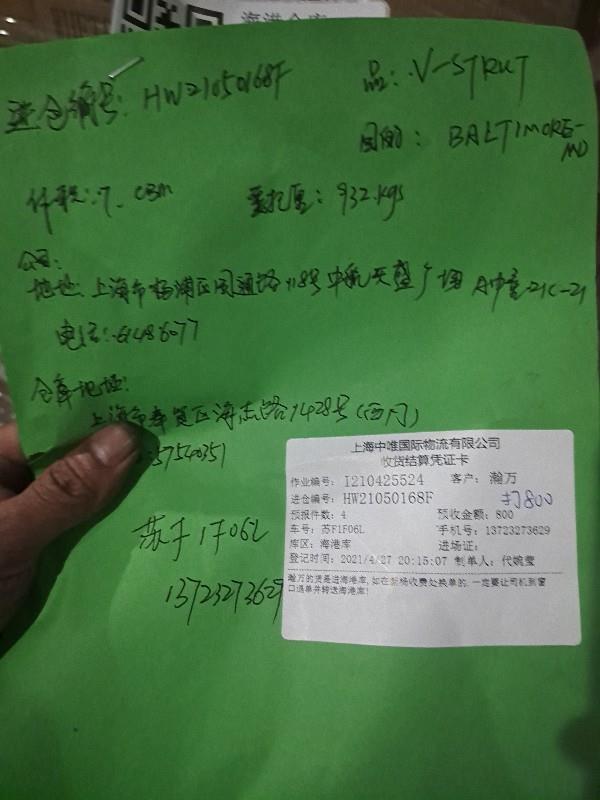 海港仓库
进仓编号: HW21050168F
品: V-STRUT
目的: BALTIMORE-MD
体积: 7. CBM
重: 932.kgs
公司:
地址: 上海市杨浦区周通路118号中航天盛广场 A 21C-21
电话: 61486077
仓库地址:
上海市奉贤区海志路1428号(西门)
:57540351
苏F1F06L
13723273629
上海中唯国际物流有限公司
收货结算凭证卡
作业编号: I210425524 客户: 瀚万
进仓编号: HW21050168F
打800
预报件数: 4 预收金额: 800
车号: 苏F1F06L 手机号: 13723273629
库区: 海港库 进场证:
登记时间: 2021/4/27 20:15:07 制单人: 代婉莹
瀚万的货是进海港库, 如在 场收费处换单的. 一定要让司机到窗
口退单并转送海港库!